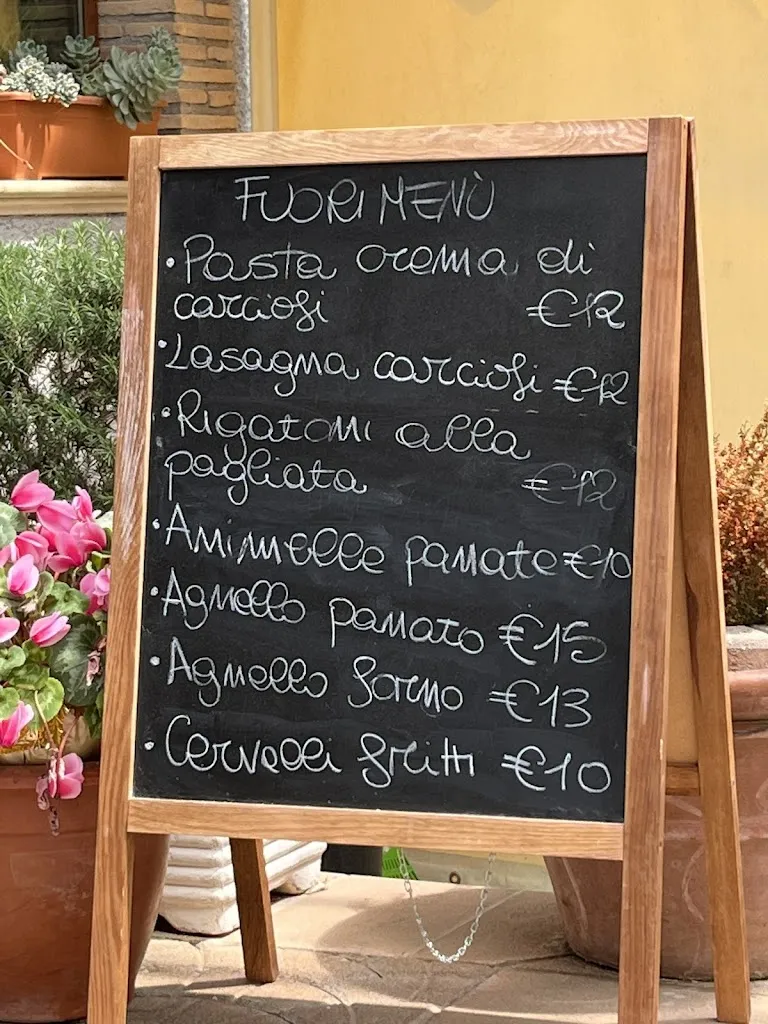 FUORI MENÙ
• Pasta crema di
carciofi €12
• Lasagna carciofi €12
• Rigatoni alla
pagliata €12
• Animelle panate €10
• Agnello panato €15
• Agnello forno €13
• Cervelli fritti €10